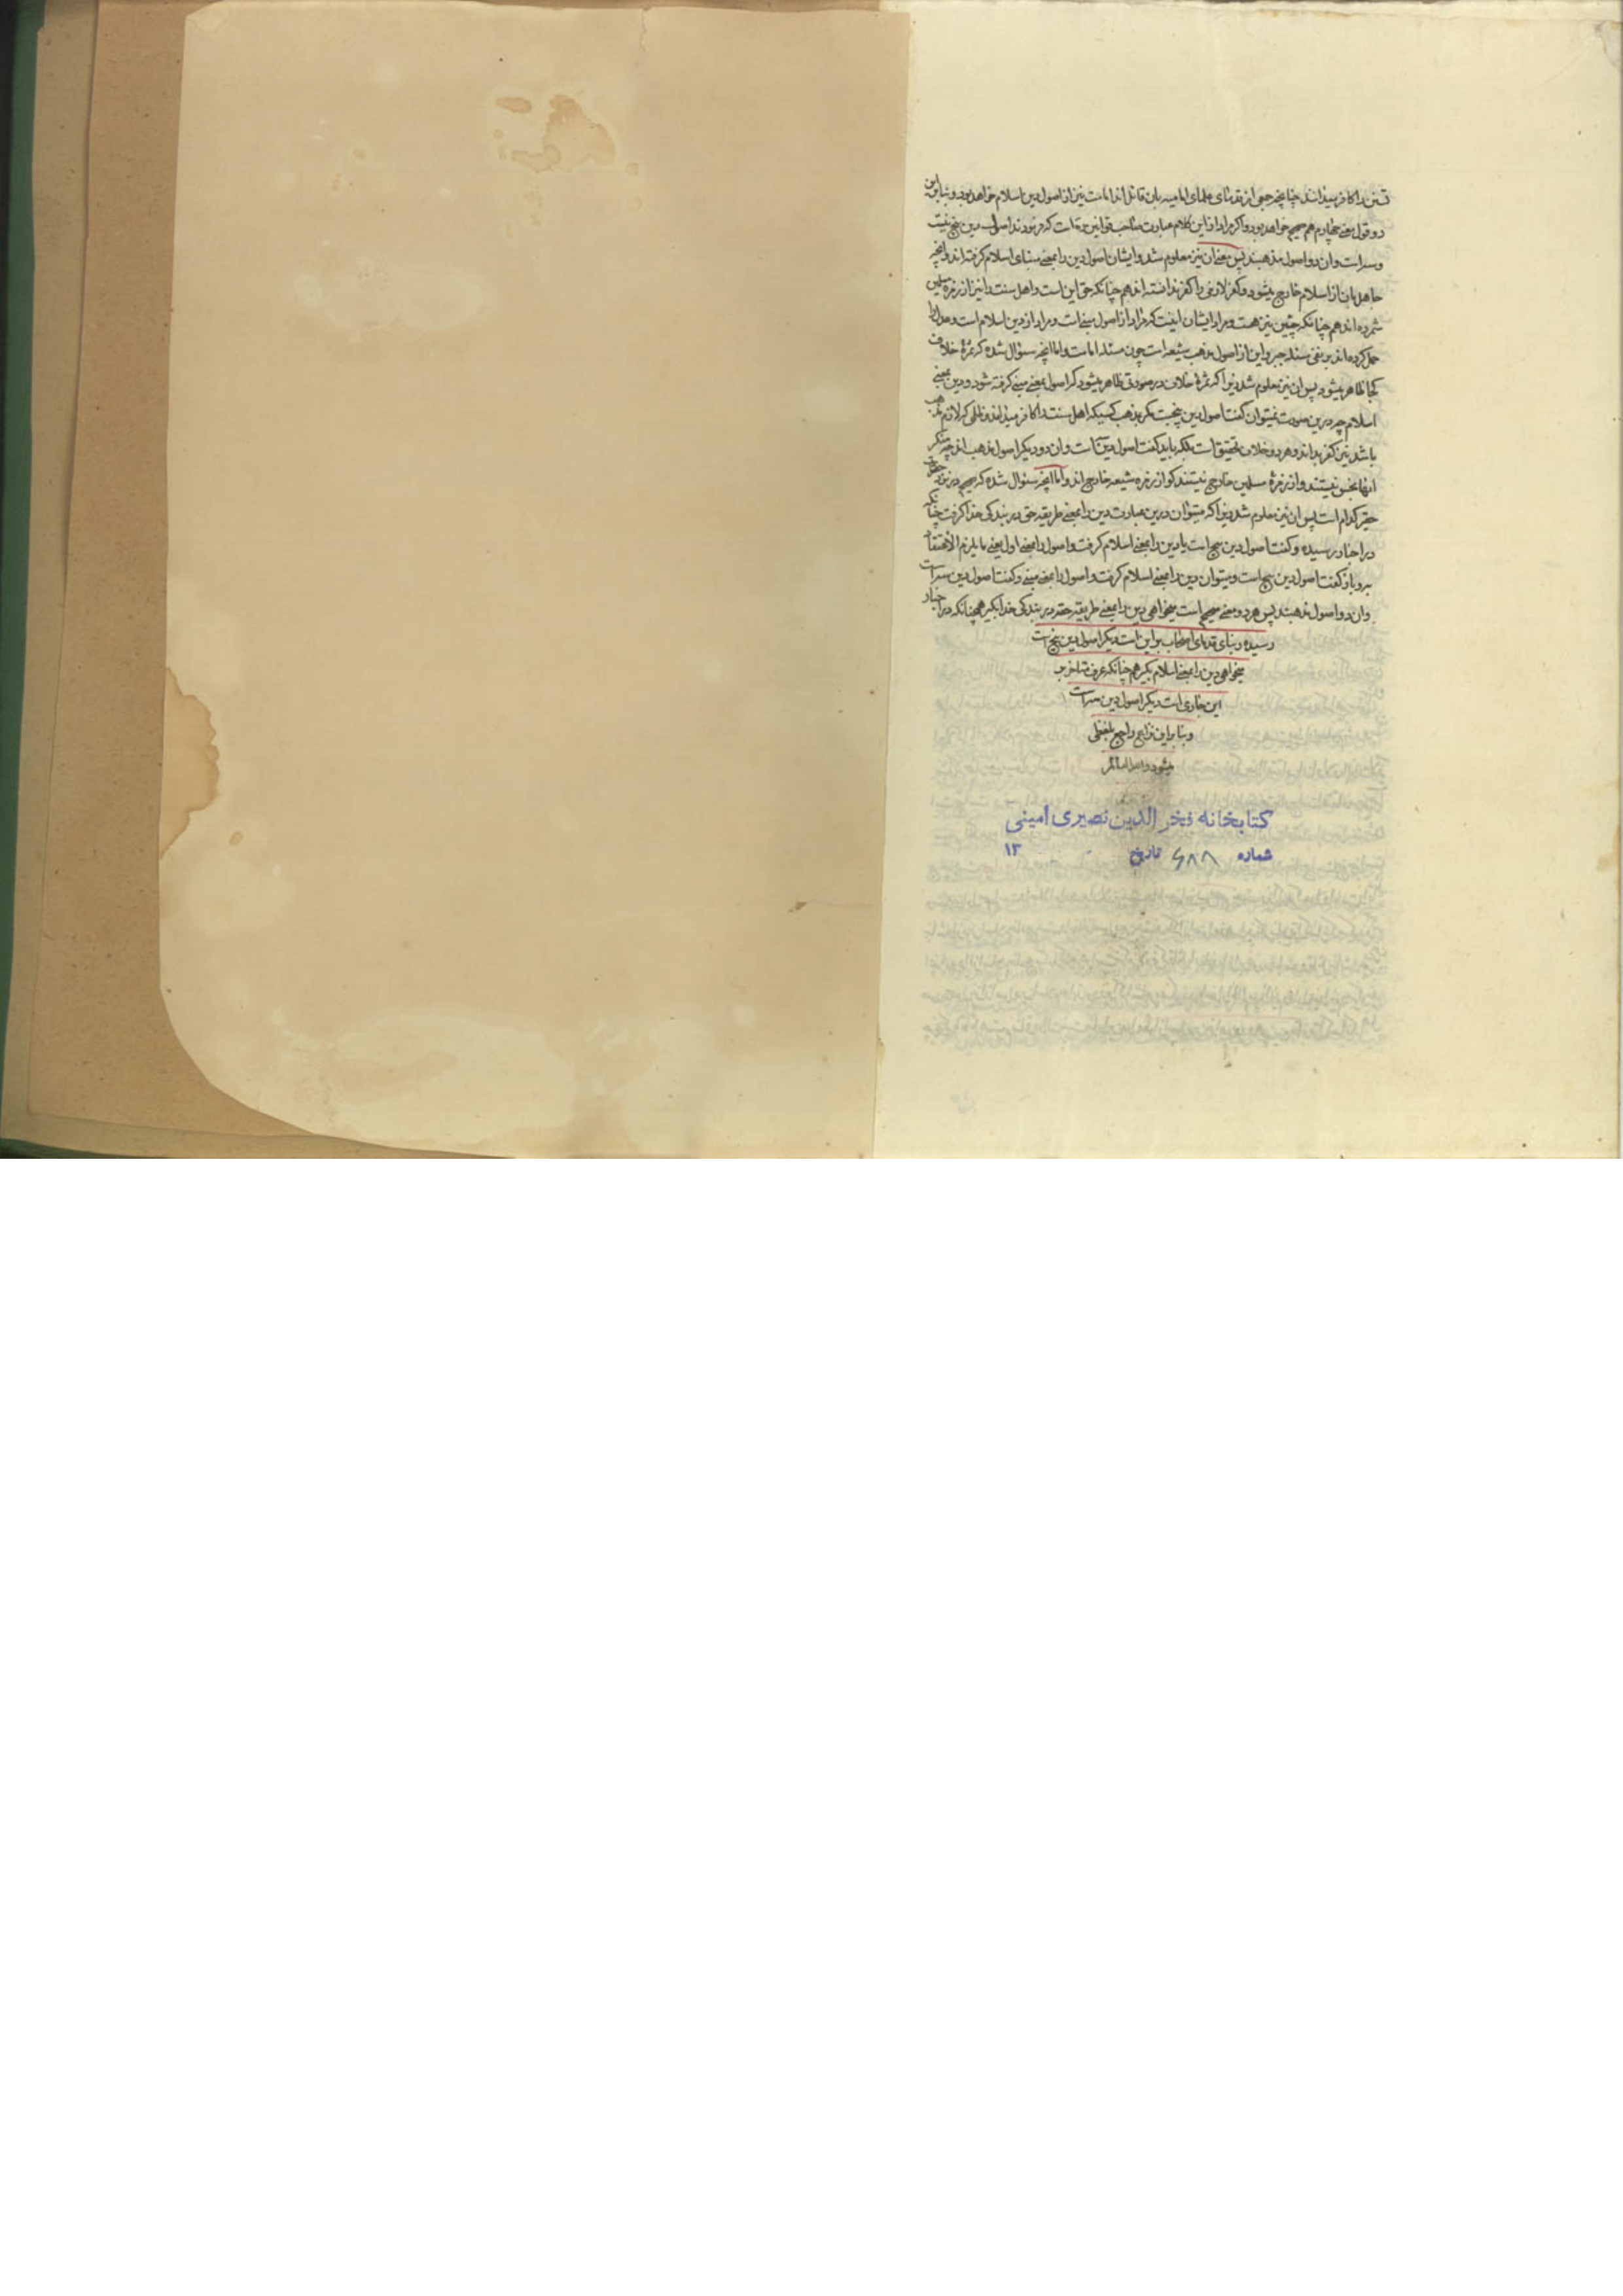 تسنن را کافر میدانند چنانچه جمعی از قدمای علمای امامیه بان قائل اند امامت نیز از اصول دین اسلام خواهد بود و بنابراین
دو قول یعنی چهارم هم صحیح خواهد بود و اکر مراد از این کلام عبارت صاحب قوانین ره است که فرمودند اصول دین پنج نیست
و سه است وان دو اصول مذهبند پس معنی ان نیز معلوم شد و ایشان اصول دین را بمعنی مبنای اسلام کرفته اند و انچه
جاهل بان از اسلام خارج میشود و کفر لازمی را کفر ندانسته اند هم چنانکه حق این است و اهل سنت را نیز از زمره مسلمین
شمرده اند هم چنانکه چنین نیز هست و مراد ایشان اینست که مراد از اصول مبنی است و مراد از دین اسلام است و عدل را
حمل کرده اند بر نفی مسئله جبر و این از اصول مذهب شیعه است چون مسئله امامت و اما انچه سئوال شده که ثمرهٔ خلاف
کجا ظاهر میشود پس ان نیز معلوم شد زیرا که ثمرهٔ خلاف در صورتی ظاهر میشود که اصول بمعنی مبنی کرفته شود و دین بمعنی
اسلام چه درین صورت نمیتوان کفت اصول دین پنجست مکر بمذهب کسیکه اهل سنت را کافر میداند و ظلمی که لازم مذهب
باشد نیز کفر بداند و هر دو خلاف تحقیق است بلکه باید کفت اصول دین سه است وان دو دیکر اصول مذهب اند چه منکر
انها نجس نیستند و از زمرهٔ مسلمین خارج نیستند کو از زمره شیعه خارج اند و اما انچه سئوال شده که صحیح در نزد
حقیر کدام است پس ان نیز معلوم شد زیرا که میتوان درین عبارت دین را بمعنی طریقه حق در بندکی خدا کرفت چنانکه
در اخبار رسیده و کفت اصول دین پنج است یا دین را بمعنی اسلام کرفت و اصول را بمعنی اول یعنی ما یلزم الاعتقاد
به و باز کفت اصول دین پنج است و میتوان دین را بمعنی اسلام کرفت و اصول را بمعنی مبنی و کفت اصول دین سه است
وان دو اصول مذهبند پس هر دو معنی صحیح است میخواهی دین را بمعنی طریقه حقه در بندکی خدا بکیر همچنانکه در اخبار
رسیده و بنای قدمای اصحاب بر این است دیکر اصول دین پنج است
میخواهی دین را بمعنی اسلام بکیر هم چنانکه عرف متاخر بر
این جاری است دیکر اصول دین سه است
و بنا براین نزاع راجع بلفظی
میشود والله العالم
کتابخانه فخر الدین نصیری امینی
شماره ۶۸۸ تاریخ ۱۳